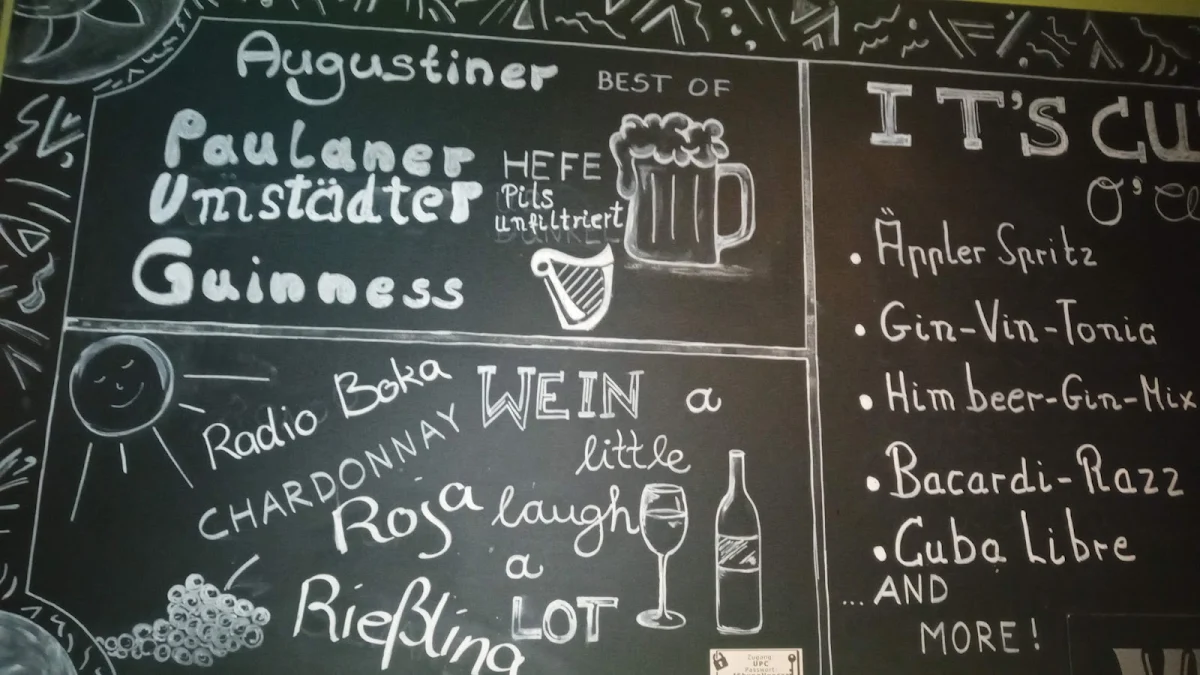 Augustiner BEST OF
Paulaner HEFE
Umstädter Pils
unfiltriert
Guinness
Radio Boka
CHARDONNAY
Rosa
Rießling
WEIN a
little
laugh
a
LOT
IT'S
Äppler Spritz
Gin-Vin-Tonic
Himbeer-Gin-Mix
Bacardi-Razz
Cuba Libre
...AND
MORE!
Zugang:
UPC
Passwort: